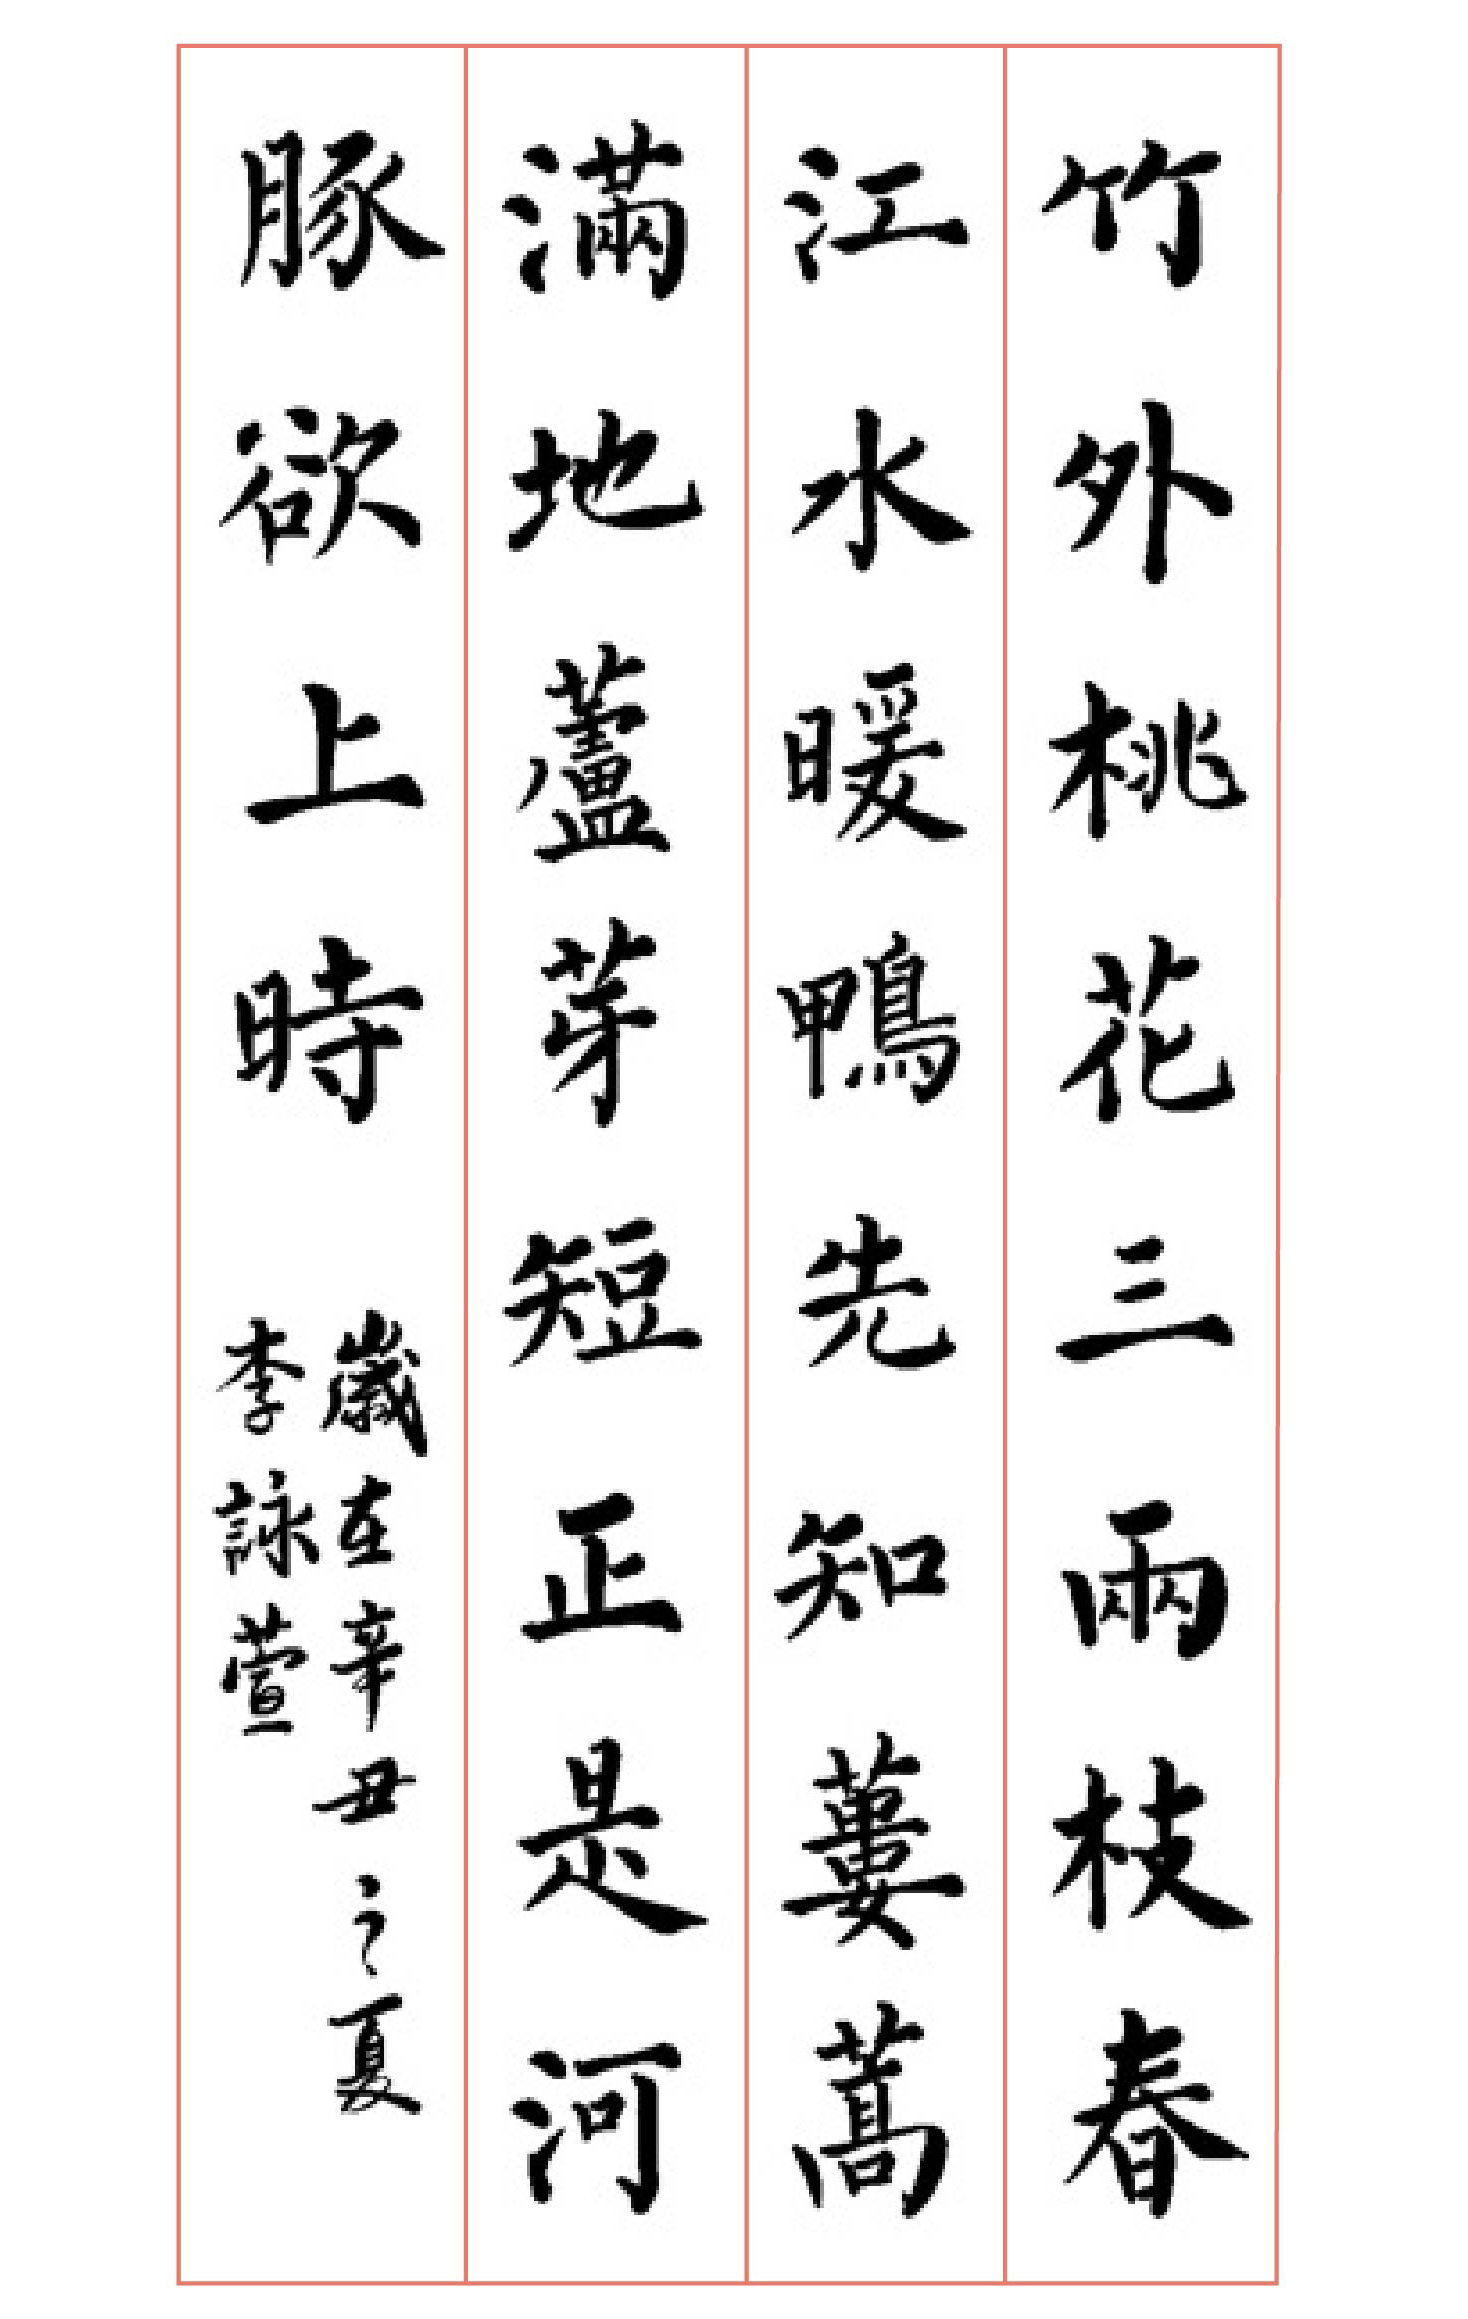 竹外桃花三兩枝春
江水暖鴨先知蔞蒿
滿地蘆芽短正是河
豚欲上時
歲在辛丑之夏
李詠萱